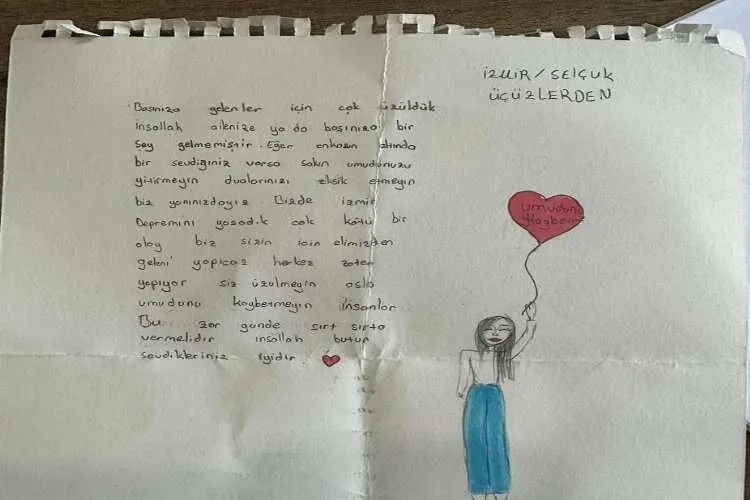 Başınıza gelenler için çok üzüldük
inşallah ailenize ya da başınıza bir
şey gelmemiştir. Eğer enkazın altında
bir sevdiğiniz varsa sakın umudunuzu
yitirmeyin dualarınızı eksik etmeyin
biz yanınızdayız Bizde izmir
Depremini yaşadık çok kötü bir
olay biz sizin için elimizden
geleni yapıcaz herkez zaten
yapıyor siz üzülmeyin asla
umudunu kaybetmeyin insanlar
Bu zor günde sırt sırta
vermelidir inşallah bütün
sevdikleriniz iyidir.
İZMİR/SELÇUK
ÜÇÜZLERDEN
umudunu